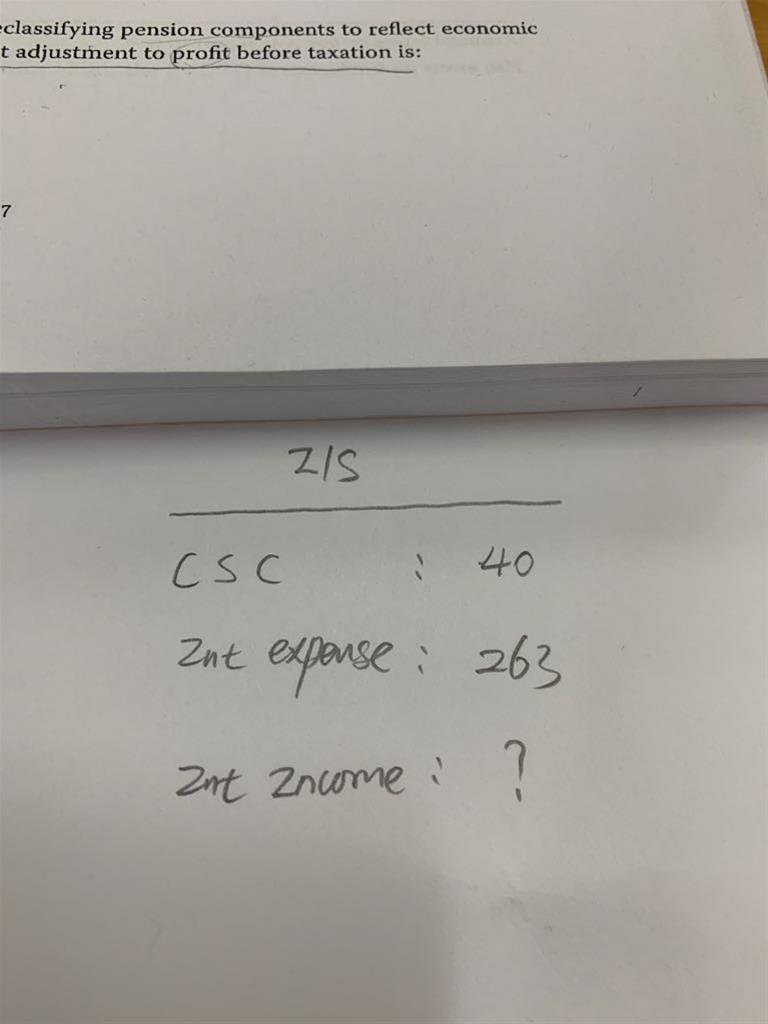 eclassifying pension components to reflect economic
t adjustment to profit before taxation is:
7
I/S
CSC : 40
Int expense : 263
Int Income : ?